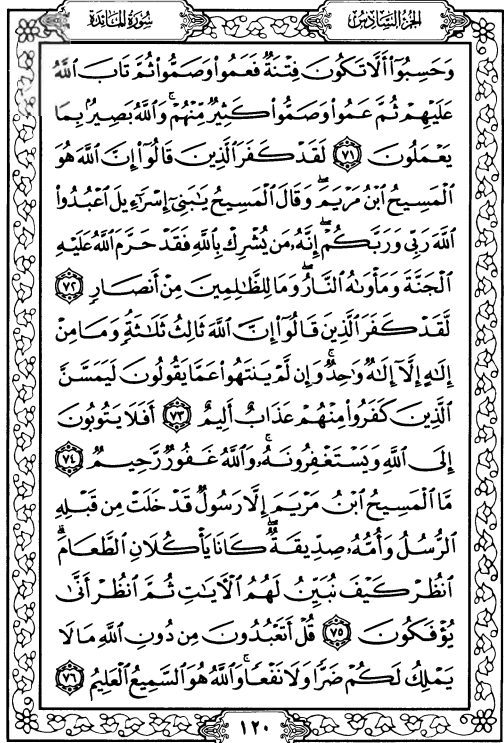 الجزء السادس
سورة المائدة
وَحَسِبُوٓا۟ أَلَّا تَكُونَ فِتْنَةٌ فَعَمُوا۟ وَصَمُّوا۟ ثُمَّ تَابَ ٱللَّهُ
عَلَيْهِمْ ثُمَّ عَمُوا۟ وَصَمُّوا۟ كَثِيرٌ مِّنْهُمْ ۚ وَٱللَّهُ بَصِيرٌۢ بِمَا
يَعْمَلُونَ ﴿٧١﴾ لَقَدْ كَفَرَ ٱلَّذِينَ قَالُوٓا۟ إِنَّ ٱللَّهَ هُوَ
ٱلْمَسِيحُ ٱبْنُ مَرْيَمَ ۖ وَقَالَ ٱلْمَسِيحُ يَـٰبَنِىٓ إِسْرَٰٓءِيلَ ٱعْبُدُوا۟
ٱللَّهَ رَبِّى وَرَبَّكُمْ ۖ إِنَّهُۥ مَن يُشْرِكْ بِٱللَّهِ فَقَدْ حَرَّمَ ٱللَّهُ عَلَيْهِ
ٱلْجَنَّةَ وَمَأْوَىٰهُ ٱلنَّارُ ۖ وَمَا لِلظَّـٰلِمِينَ مِنْ أَنصَارٍ ﴿٧٢﴾
لَّقَدْ كَفَرَ ٱلَّذِينَ قَالُوٓا۟ إِنَّ ٱللَّهَ ثَالِثُ ثَلَـٰثَةٍ ۘ وَمَا مِنْ
إِلَـٰهٍ إِلَّآ إِلَـٰهٌ وَٰحِدٌ ۚ وَإِن لَّمْ يَنتَهُوا۟ عَمَّا يَقُولُونَ لَيَمَسَّنَّ
ٱلَّذِينَ كَفَرُوا۟ مِنْهُمْ عَذَابٌ أَلِيمٌ ﴿٧٣﴾ أَفَلَا يَتُوبُونَ
إِلَى ٱللَّهِ وَيَسْتَغْفِرُونَهُۥ ۚ وَٱللَّهُ غَفُورٌ رَّحِيمٌ ﴿٧٤﴾
مَّا ٱلْمَسِيحُ ٱبْنُ مَرْيَمَ إِلَّا رَسُولٌ قَدْ خَلَتْ مِن قَبْلِهِ
ٱلرُّسُلُ وَأُمُّهُۥ صِدِّيقَةٌ ۖ كَانَا يَأْكُلَانِ ٱلطَّعَامَ ۗ
ٱنظُرْ كَيْفَ نُبَيِّنُ لَهُمُ ٱلْـَٔايَـٰتِ ثُمَّ ٱنظُرْ أَنَّىٰ
يُؤْفَكُونَ ﴿٧٥﴾ قُلْ أَتَعْبُدُونَ مِن دُونِ ٱللَّهِ مَا لَا
يَمْلِكُ لَكُمْ ضَرًّا وَلَا نَفْعًا ۚ وَٱللَّهُ هُوَ ٱلسَّمِيعُ ٱلْعَلِيمُ ﴿٧٦﴾
١٢٠